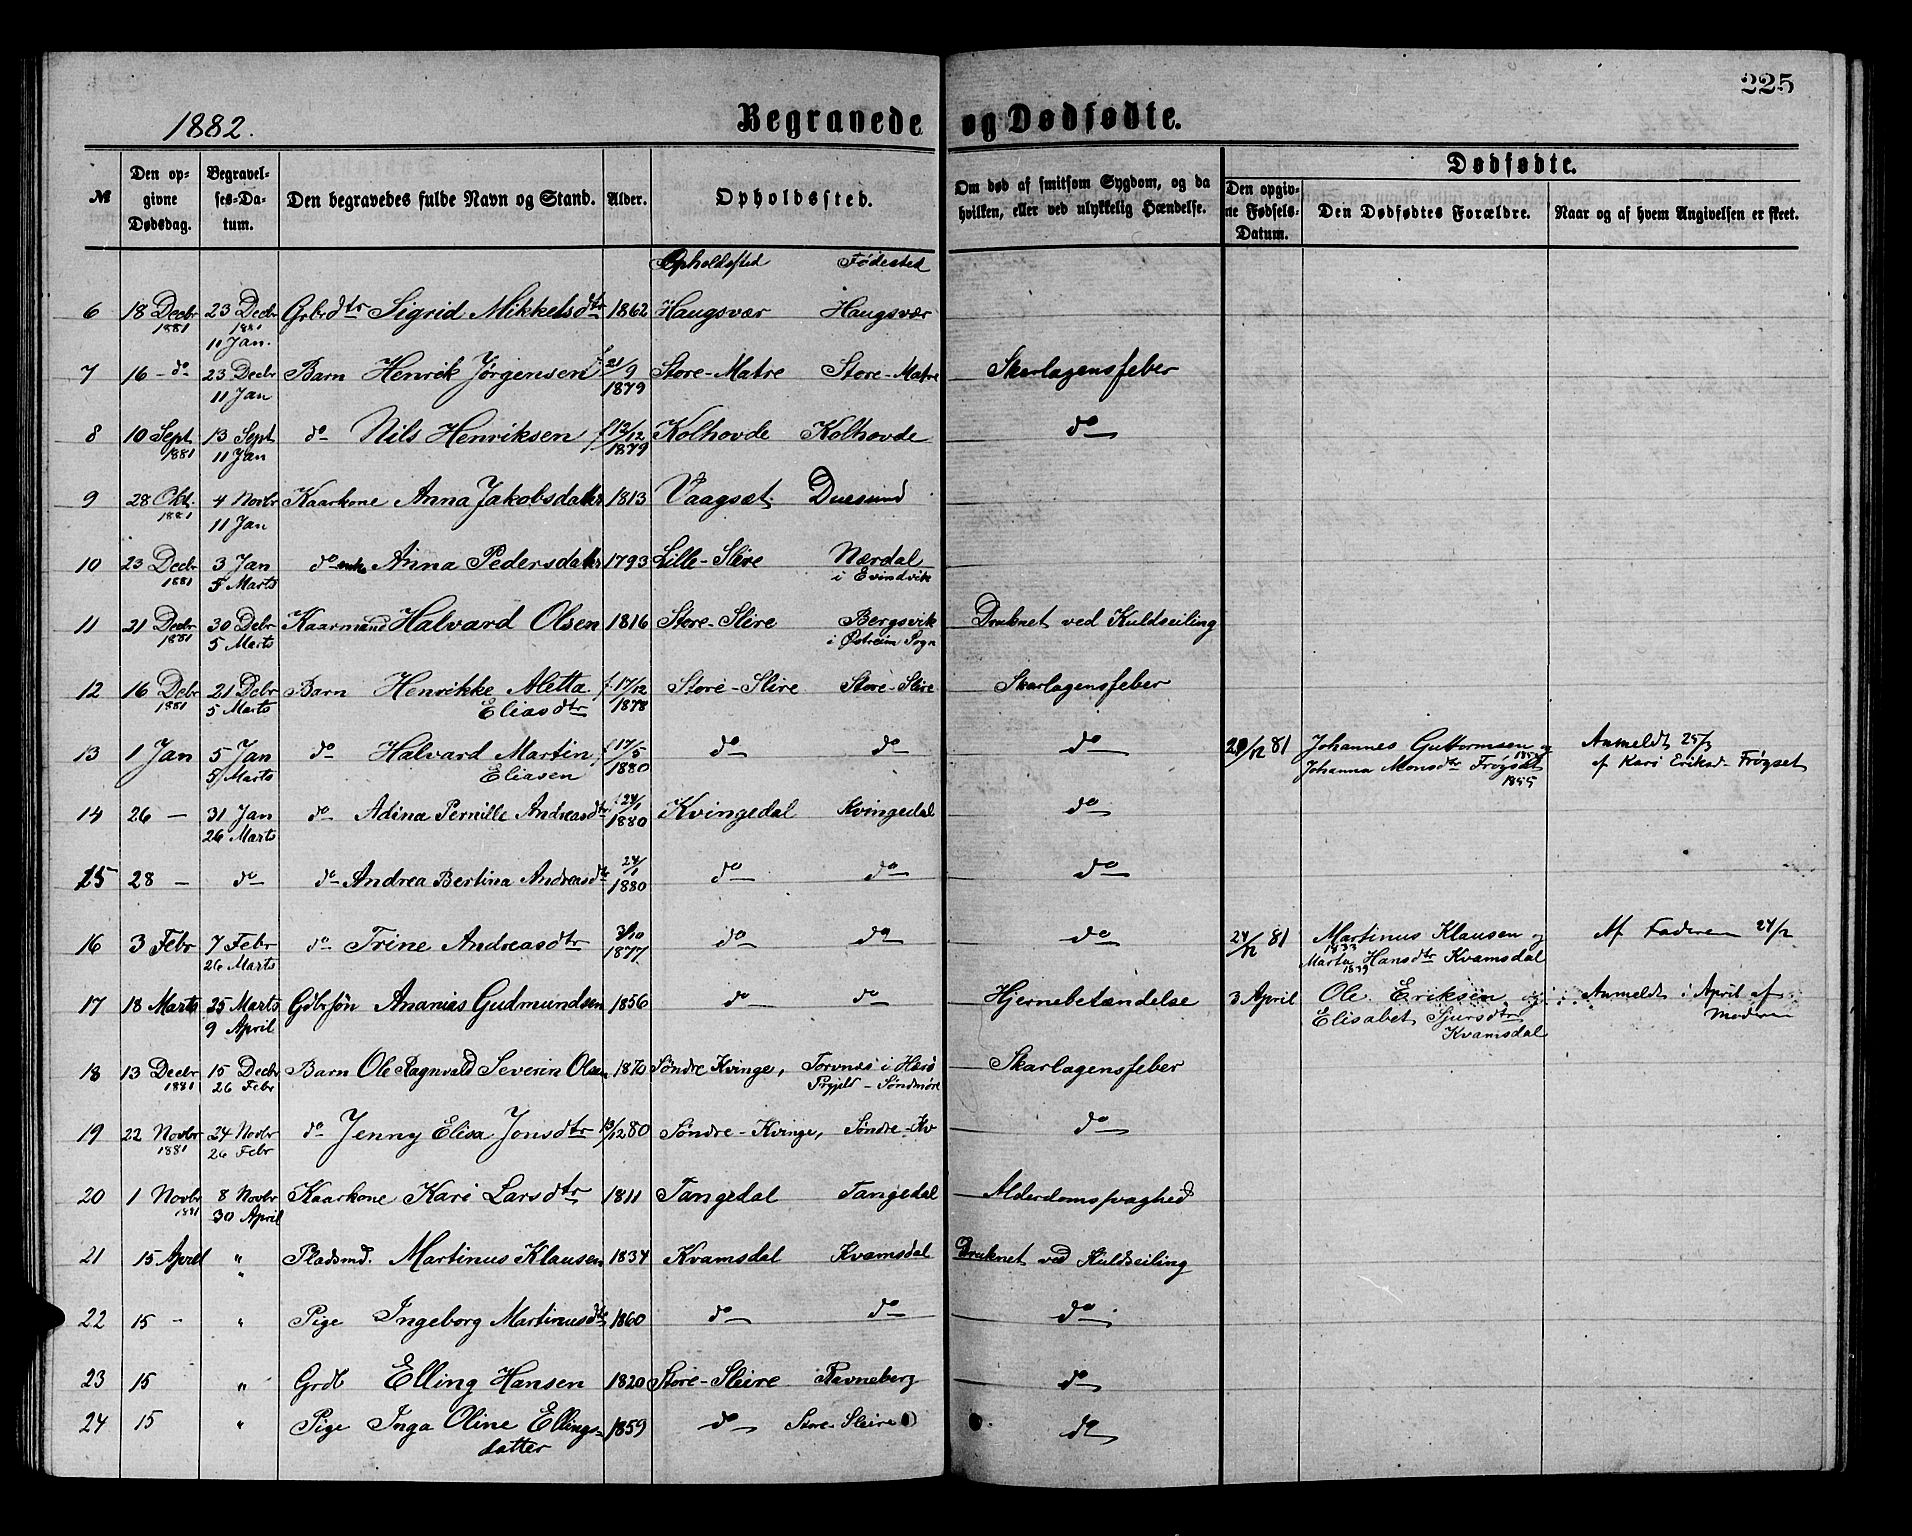 225
1882.
Begravede og Dødfødte.
№
Den op-
givne
Dødsdag.
Begravel-
ses-Da-
tum.
Den begravedes fulde Navn og Stand.
Alder.
Opholdssted.
Om død af smitsom Sygdom, og da
hvilken, eller ved ulykkelig Hændelse.
Dødfødte.
Den opgiv-
ne Fødsels-
Datum.
Den Dødfødtes Forældre.
Naar og af hvem Angivelsen er skeet.
Opholdssted Fødested
6 18 Decbr 23 Decbr Gbrdtr Sigrid Mikkelsdtr 1862 Haugsvær Haugsvær
1881 1881
11 Jan.
7 16 - do 23 Decbr Barn Henrik Jørgensen f 21/9 Store-Matre Store-Matre Skarlagensfeber
11 Jan 1879
8 10 Sept 13 Sept do Nils Henriksen f 12/12 Kolhovde Kolhovde do
1881 11 Jan 1879
9 28 Okt. 4 Novbr Kaarkone Anna Jakobsdatter 1813 Vaagsæt Duesund
1881 11 Jan
10 23 Decbr 3 Jan do enke Anna Pedersdatter 1793 Lille-Slire Nærdal
1881 5 Marts i Evindvik
11 21 Decbr 30 Debr Kaarmand Halvard Olsen 1816 Store-Slire Bergsvik Druknet ved Kuldseiling
1881 5 Marts i Østreim Sogn
12 16 Debr 21 Debr Barn Henrikke Aletta f 17/12 Store-Slire Store-Slire Skarlagensfeber
1881 5 Marts Eliasdtr 1878
13 1 Jan 5 Jan do Halvard Martin f 17/5 do do do 29/12 81 Johannes Guttormsen og Anmeldt 25/3
5 Marts Eliasen 1880 Johanna Monsdtr Frøyset af Kari Eriksd. Frøyset
1855
14 26 — 31 Jan do Adina Pernille Andreasdtr f 24/1 Kvingedal Kvingedal do
26 Marts 1880
15 28 — do do Andrea Bertina Andreasdtr 24/1 do do do
1880
16 3 Febr 7 Febr do Trine Andreasdtr 3/10 do do do 24/12 81 Martinus Klausen og Af Faderen 24/2
26 Marts 1877 1833
Marta Hansdtr Kvamsdal
1839
17 18 Marts 25 Marts Gbrsøn Ananias Gudmundsen 1856 do do Hjernebetændelse 3 April Ole Eriksen og Anmeldt i April af
9 April Elisabet Sjursdtr Moderen
Kvamsdal
18 13 Decbr 15 Decbr Barn Ole Ragnvald Severin Olsen 1870 Søndre Kvinge, Torvnes i Herø Skarlagensfeber
1881 26 Febr Prgjeld - Søndmøre
19 22 Novbr 24 Novbr do Jenny Elisa Jonsdtr 13/12 80 Søndre-Kvinge, Søndre-Kv do
1881 26 Febr
20 1 Novbr 8 Novbr Kaarkone Kari Larsdtr 1811 Tangedal Tangedal Alderdomssvaghed
1881 30 April
21 15 April " Pladsmd. Martinus Klausen 1834 Kvamsdal Kvamsdal Druknet ved Kuldseiling
"
22 15 - " Pige Ingeborg Martinusdtr 1860 do do do
23 15 " Grdb Elling Hansen 1820 Store-Sleire Ravneberg do
24 15 " Pige Inga Oline Ellings- 1859 do Store-Sleire do
datter